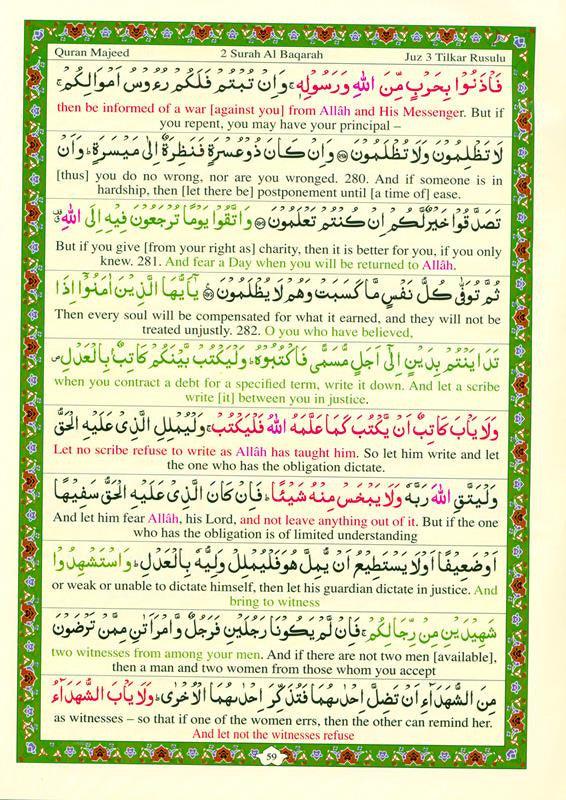 Quran Majeed 2 Surah Al Baqarah Juz 3 Tilkar Rusulu
فَاۡذَنُوۡا بِحَرۡبٍ مِّنَ اللّٰهِ وَرَسُوۡلِهٖ‌ۚ وَاِنۡ تُبۡتُمۡ فَلَـكُمۡ رُءُوۡسُ اَمۡوَالِكُمۡ‌ۚ
then be informed of a war [against you] from Allâh and His Messenger. But if
you repent, you may have your principal –
لَا تَظۡلِمُوۡنَ وَلَا تُظۡلَمُوۡنَ ﴿۲۷۹﴾ وَاِنۡ كَانَ ذُوۡ عُسۡرَةٍ فَنَظِرَةٌ اِلٰى مَيۡسَرَةٍ‌ ؕ وَاَنۡ
[thus] you do no wrong, nor are you wronged. 280. And if someone is in
hardship, then [let there be] postponement until [a time of] ease.
تَصَدَّقُوۡا خَيۡرٌ لَّـكُمۡ‌ اِنۡ كُنۡتُمۡ تَعۡلَمُوۡنَ ﴿۲۸۰﴾ وَاتَّقُوۡا يَوۡمًا تُرۡجَعُوۡنَ فِيۡهِ اِلَى اللّٰهِ
But if you give [from your right as] charity, then it is better for you, if you only
knew. 281. And fear a Day when you will be returned to Allâh.
ثُمَّ تُوَفّٰى كُلُّ نَفۡسٍ مَّا كَسَبَتۡ وَهُمۡ لَا يُظۡلَمُوۡنَ ﴿۲۸۱﴾ يٰۤـاَيُّهَا الَّذِيۡنَ اٰمَنُوۡۤا اِذَا
Then every soul will be compensated for what it earned, and they will not be
treated unjustly. 282. O you who have believed,
تَدَايَنۡتُمۡ بِدَيۡنٍ اِلٰٓى اَجَلٍ مُّسَمًّى فَاكۡتُبُوۡهُ ؕ وَلۡيَكۡتُب بَّيۡنَكُمۡ كَاتِبٌۢ بِالۡعَدۡلِ‌
when you contract a debt for a specified term, write it down. And let a scribe
write [it] between you in justice.
وَلَا يَاۡبَ كَاتِبٌ اَنۡ يَّكۡتُبَ كَمَا عَلَّمَهُ اللّٰهُ‌ فَلۡيَكۡتُبۡ‌ۚ وَلۡيُمۡلِلِ الَّذِىۡ عَلَيۡهِ الۡحَـقُّ
Let no scribe refuse to write as Allâh has taught him. So let him write and let
the one who has the obligation dictate.
وَلۡيَتَّقِ اللّٰهَ رَبَّهٗ وَلَا يَبۡخَسۡ مِنۡهُ شَيۡـئًـا‌ ؕ فَاِنۡ كَانَ الَّذِىۡ عَلَيۡهِ الۡحَـقُّ سَفِيۡهًا
And let him fear Allâh, his Lord, and not leave anything out of it. But if the one
who has the obligation is of limited understanding
اَوۡ ضَعِيۡفًا اَوۡ لَا يَسۡتَطِيۡعُ اَنۡ يُّمِلَّ هُوَ فَلۡيُمۡلِلۡ وَلِيُّهٗ بِالۡعَدۡلِ‌ؕ وَاسۡتَشۡهِدُوۡا
or weak or unable to dictate himself, then let his guardian dictate in justice. And
bring to witness
شَهِيۡدَيۡنِ مِنۡ رِّجَالِكُمۡ‌ۚ فَاِنۡ لَّمۡ يَكُوۡنَا رَجُلَيۡنِ فَرَجُلٌ وَّامۡرَاَتٰنِ مِمَّنۡ تَرۡضَوۡنَ
two witnesses from among your men. And if there are not two men [available],
then a man and two women from those whom you accept
مِنَ الشُّهَدَآءِ اَنۡ تَضِلَّ اِحۡدٰٮهُمَا فَتُذَكِّرَ اِحۡدٰٮهُمَا الۡاُخۡرٰى‌ؕ وَ لَا يَاۡبَ الشُّهَدَآءُ
as witnesses – so that if one of the women errs, then the other can remind her.
And let not the witnesses refuse
59